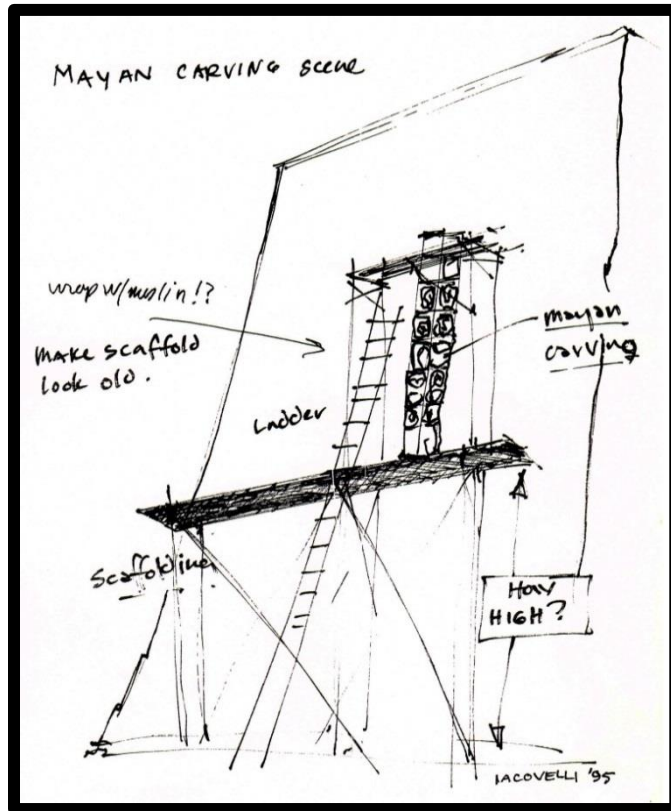 MAYAN CARVING SCENE
wrap w/muslin!?
make scaffold
look old.
mayan
carving
Ladder
Scaffolding
HOW
HIGH?
IACOVELLI '95